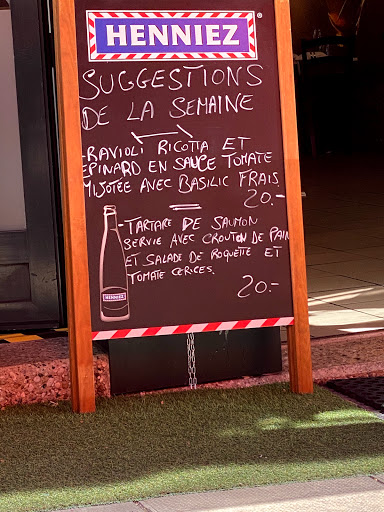 HENNIEZ®
SUGGESTIONS
DE LA SEMAINE
-RAVIOLI RICOTTA ET
EPINARD EN SAUCE TOMATE
MIJOTÉE AVEC BASILIC FRAIS
20.-
-TARTARE DE SAUMON
SERVIE AVEC CROUTON DE PAIN
ET SALADE DE ROQUETTE ET
TOMATE CERICES.
20.-
HENNIEZ